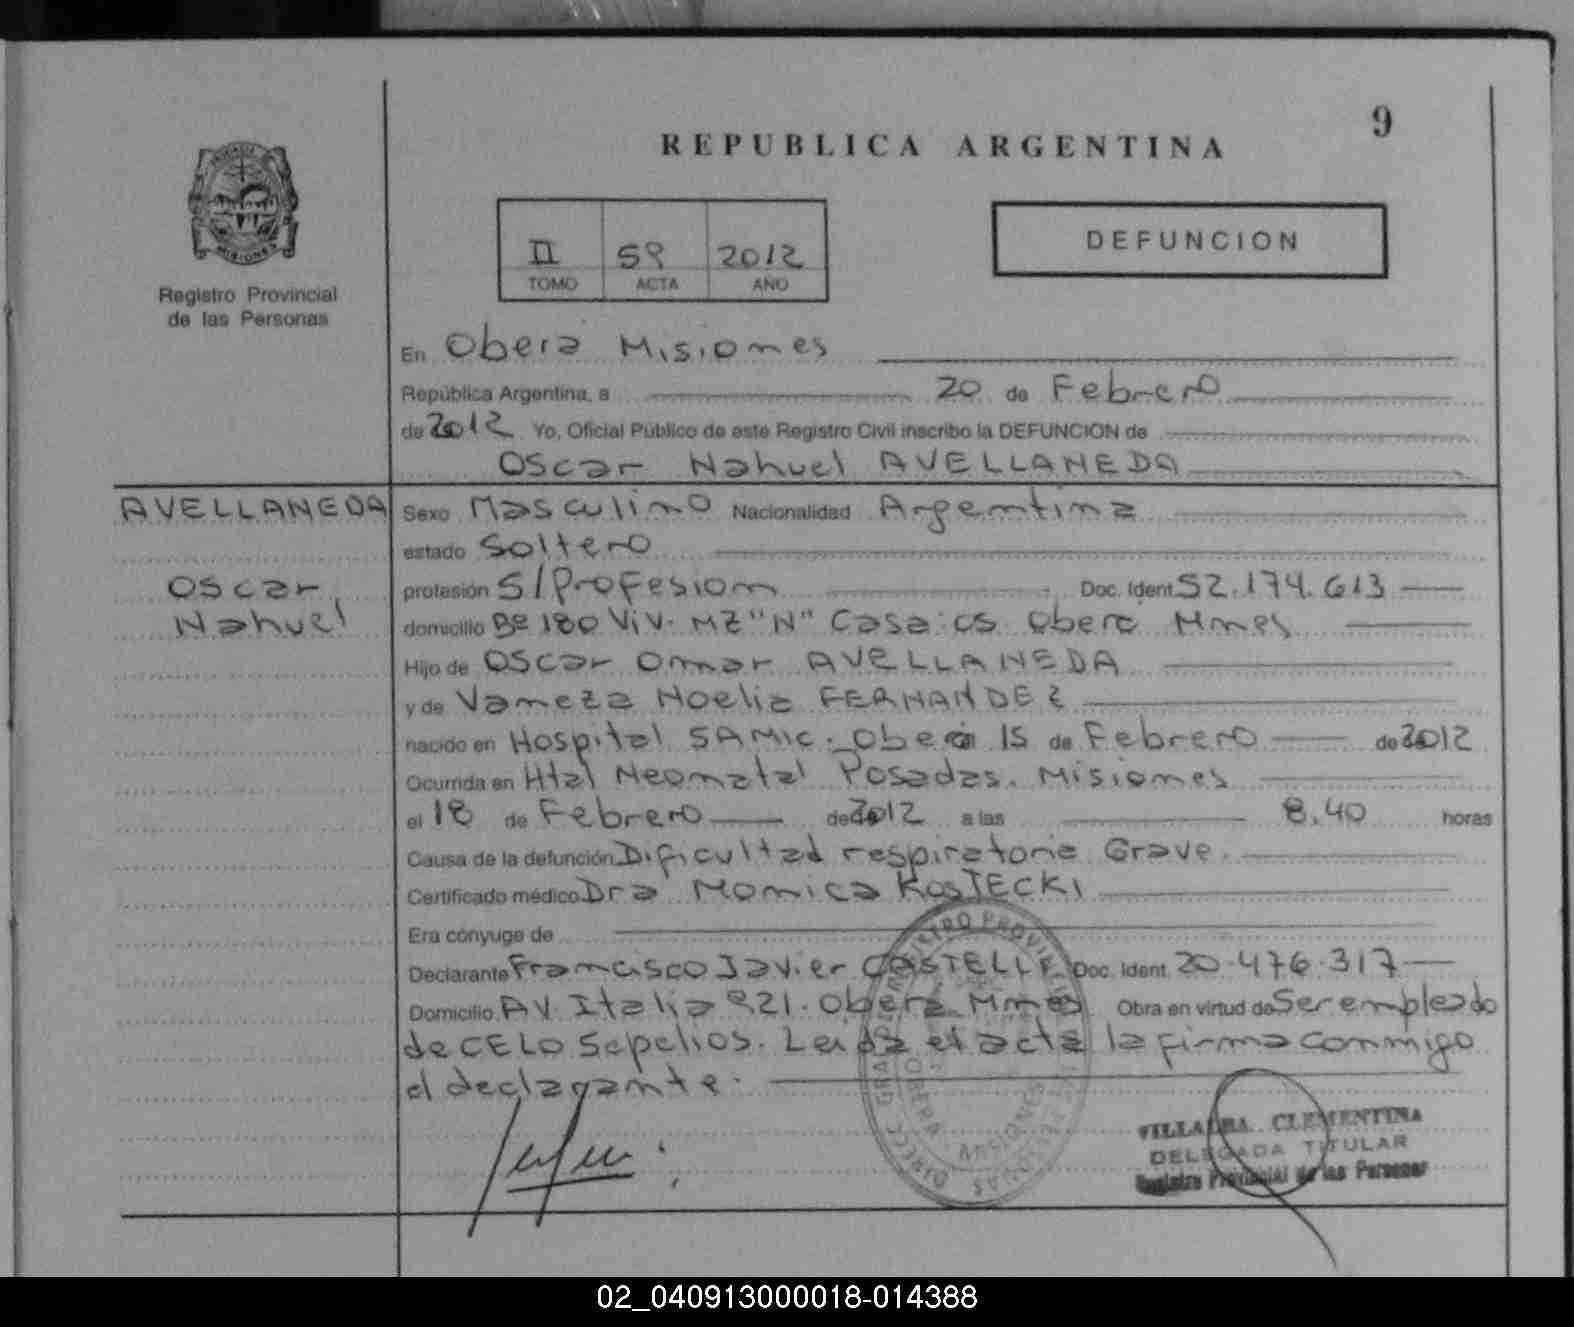 9
REPUBLICA ARGENTINA
PROVINCIA
MISIONES
Registro Provincial
de las Personas
II 59 2012
TOMO ACTA AÑO
DEFUNCION
En Obera Misiones
República Argentina, a 20 de Febrero
de 2012 Yo, Oficial Público de este Registro Civil inscribo la DEFUNCION de
Oscar Nahuel AVELLANEDA
AVELLANEDA
Oscar
Nahuel
Sexo Masculino Nacionalidad Argentina
estado Soltero
profesión S/Profesion Doc. Ident. 52.174.613
domicilio Bº 180 Viv. MZ "N" Casa 05 Obera Mnes
Hijo de Oscar Omar AVELLANEDA
y de Vaneza Noelia FERNANDEZ
nacido en Hospital SAMIC. Obera 15 de Febrero de 2012
Ocurrida en Htal Neonatal Posadas. Misiones
el 18 de Febrero de 2012 a las 8,40 horas
Causa de la defunción Dificultad respiratoria Grave.
Certificado médico Dra Monica KosTECKI
Era cónyuge de
Declarante Francisco Javier Doc. Ident. 20.476.317
Domicilio AV. Italia 921. Obera Mnes Obra en virtud de Ser empleado
de CELO Sepelios. Leida el acta la firma conmigo
el declarante.
OBERA MISIONES
VILLALBA CLEMENTINA
DELEGADA TITULAR
Registro Provincial de las Personas
02_040913000018-014388